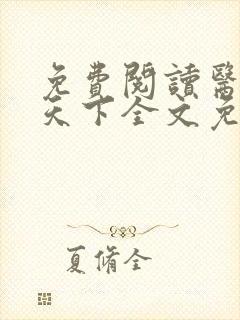 免費閱讀醫
天下全文免
夏脩全